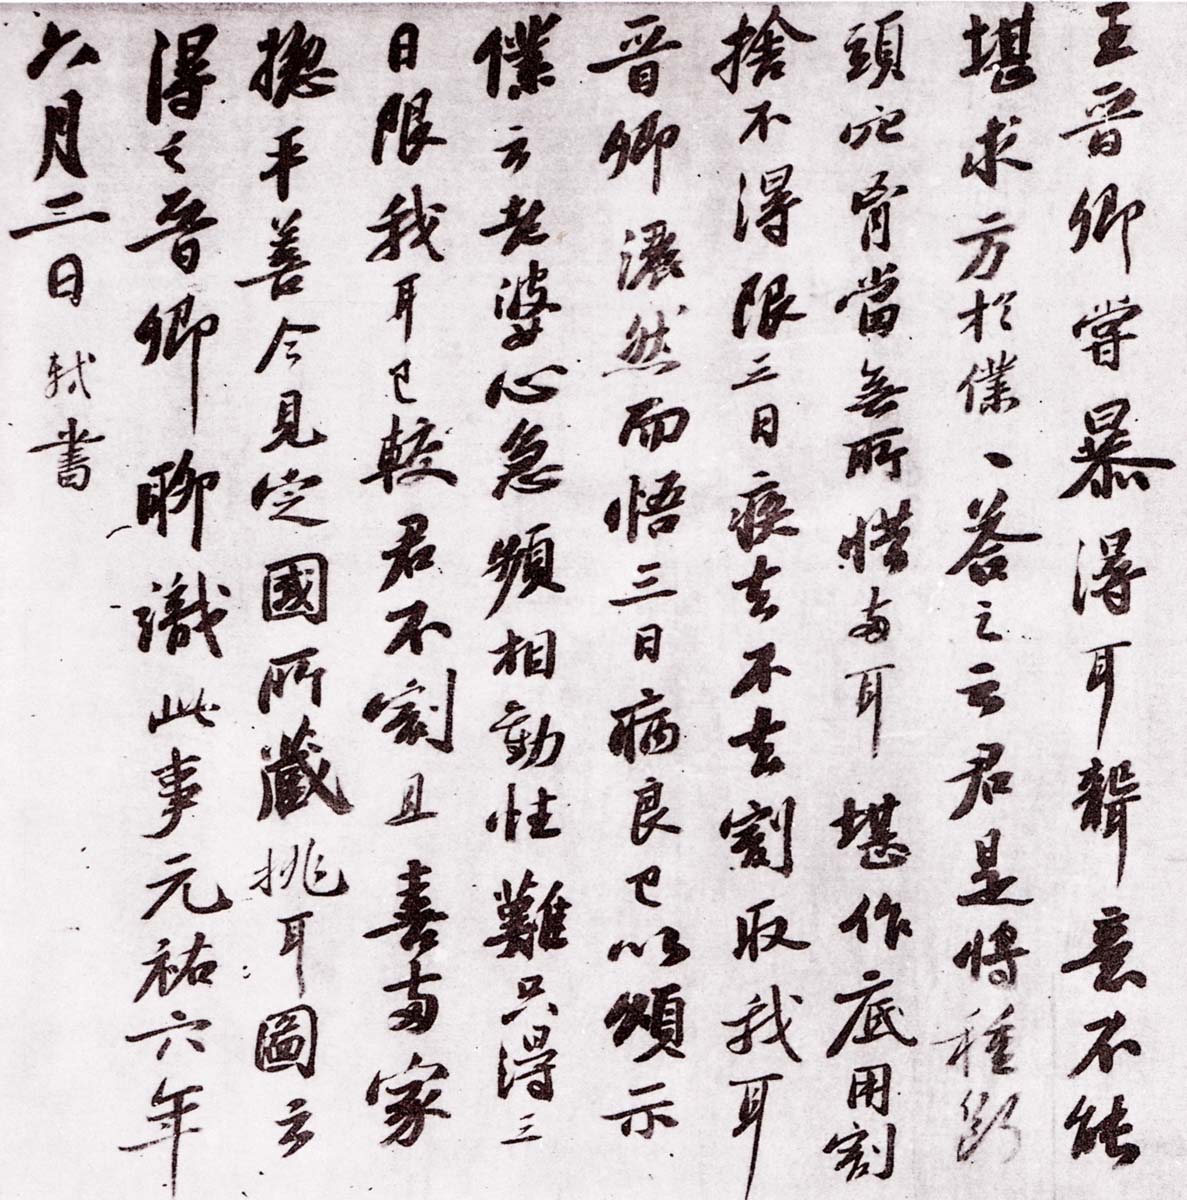 王晉卿嘗暴得耳聾意不能
堪求方於僕、答之云君是將種斷
頭穴胷當無所惜兩耳堪作底用割
捨不得限三日疾去不去割取我耳
晉卿灑然而悟三日病良已以頌示
僕云老婆心急頻相勸性難只得三
日限我耳已較君不割且喜兩家
揔平善今見定國所藏挑耳圖云
得之晉卿聊識此事元祐六年
六月三日軾書